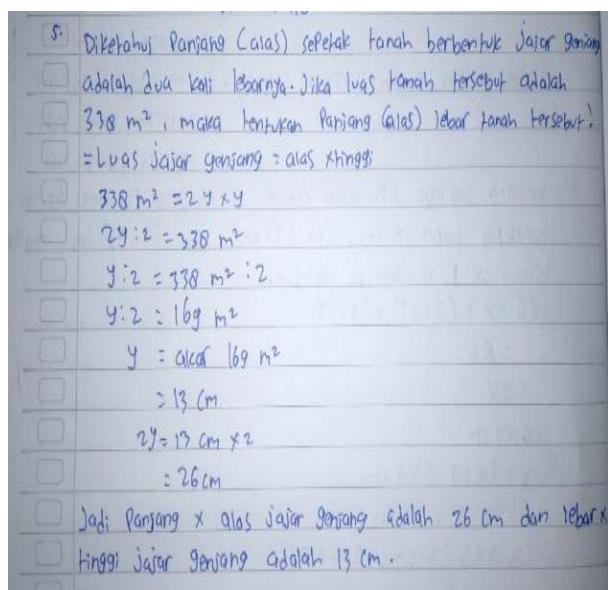 5. Diketahui Panjang (alas) sepetak tanah berbentuk jajar genjang
adalah dua kali lebarnya. Jika luas tanah tersebut adalah
338 m², maka tentukan Panjang (alas) lebar tanah tersebut!
= Luas jajar genjang = alas x tinggi
338 m² = 2y x y
2y:2 = 338 m²
y:2 = 338 m² : 2
y:2 = 169 m²
y = akar 169 m²
= 13 cm
2y = 13 cm x 2
= 26 cm
Jadi Panjang x alas jajar genjang adalah 26 cm dan lebar x
tinggi jajar genjang adalah 13 cm.